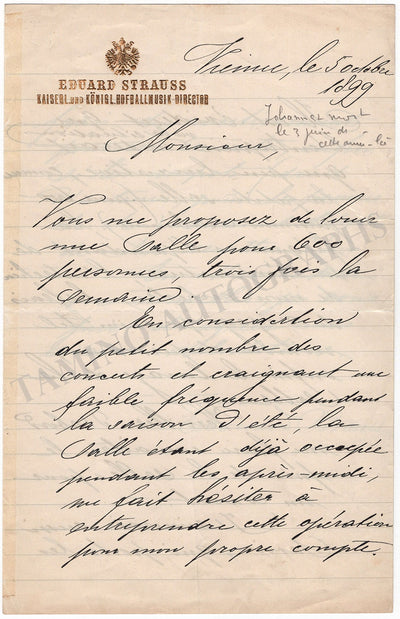 EDUARD STRAUSS
KAISERL. UND KÖNIGL. HOFBALLMUSIK-DIRECTOR
Vienne, le 5 octobre
1899
Johann est mort
le 3 juin de
cette année-là
Monsieur,
Vous me proposez de louer
une salle pour 600
personnes, trois fois la
semaine.
En considértion
du petit nombre des
concerts et craignant une
faible fréquence pendant
la saison d'été, la
salle étant déjà occupée
pendant les après-midi,
me fait hésiter à
entreprendre cette opération
pour mon propre compte.
TAMINO AUTOGRAPHS